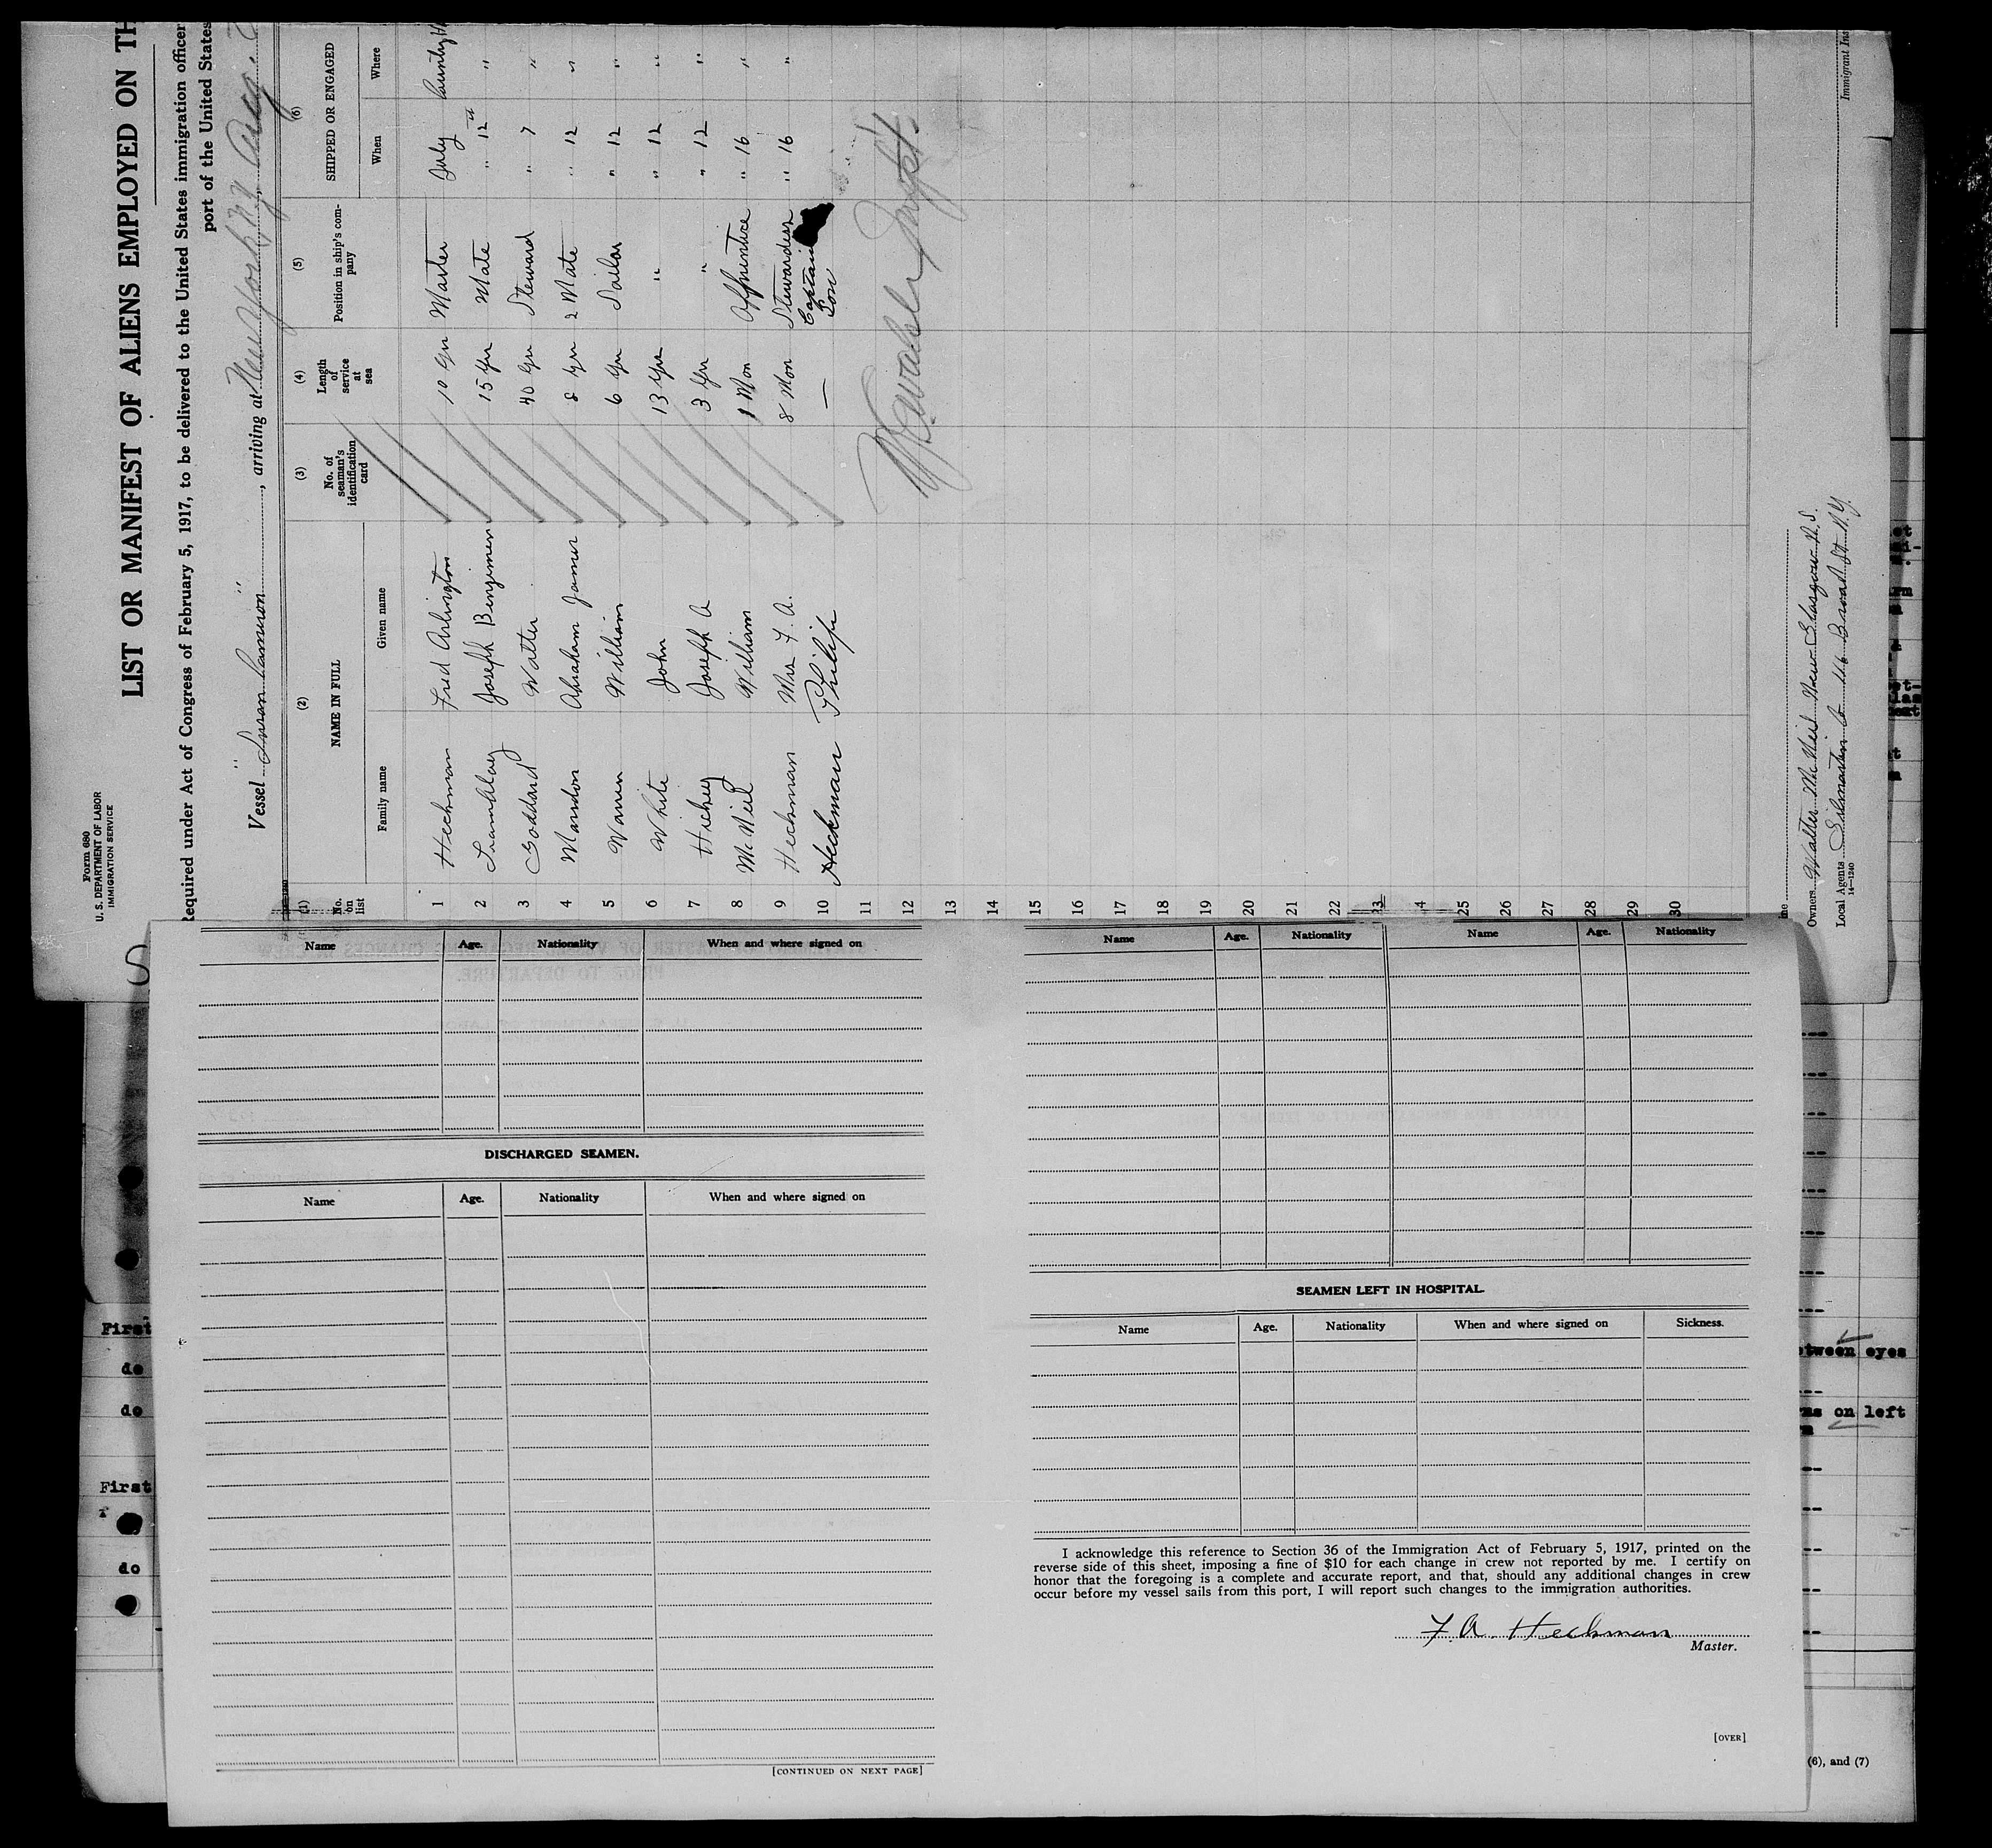 Form 680
U. S. DEPARTMENT OF LABOR
IMMIGRATION SERVICE
LIST OR MANIFEST OF ALIENS EMPLOYED ON TH
Required under Act of Congress of February 5, 1917, to be delivered to the United States immigration officer
port of the United States
Vessel "Susan Cameron", arriving at New York N.Y. Aug.
(1) (2) (3) (4) (5) (6)
No. on list NAME IN FULL No. of seaman's identification card Length of service at sea Position in ship's company SHIPPED OR ENGAGED
Family name Given name When Where
1 Heckman Fred Arlington 10 yrs Master July
2 Joseph Benjimen 15 yrs Mate " 12 "
3 Goddard Walter 40 yrs Steward " 7 "
4 Marsdon Abraham James 8 yrs 2 Mate " 12 "
5 Warren William 6 yrs Sailor " 12 "
6 White John 13 yrs " " 12 "
7 Hickey Joseph A 3 yrs " " 12 "
8 McNeil William 1 Mon Apprentice " 16 "
9 Heckman Mrs F. A. 8 Mon Stewardess " 16 "
10 Heckman Philip — Captain Son
11
12
13
14
15
16
17
18
19
20
21
22
23
24
25
26
27
28
29
30
Owners Walter McNeil New Glasgow N.S.
Local Agents 116 Broad St N.Y.
14—1240
Immigrant Ins
Name Age. Nationality When and where signed on
DISCHARGED SEAMEN.
Name Age. Nationality When and where signed on
[CONTINUED ON NEXT PAGE]
Name Age. Nationality Name Age. Nationality
SEAMEN LEFT IN HOSPITAL.
Name Age. Nationality When and where signed on Sickness.
I acknowledge this reference to Section 36 of the Immigration Act of February 5, 1917, printed on the
reverse side of this sheet, imposing a fine of $10 for each change in crew not reported by me. I certify on
honor that the foregoing is a complete and accurate report, and that, should any additional changes in crew
occur before my vessel sails from this port, I will report such changes to the immigration authorities.
F. A. Heckman
Master.
[OVER]
First
do
do
First
do
tween eyes
on left
(6), and (7)